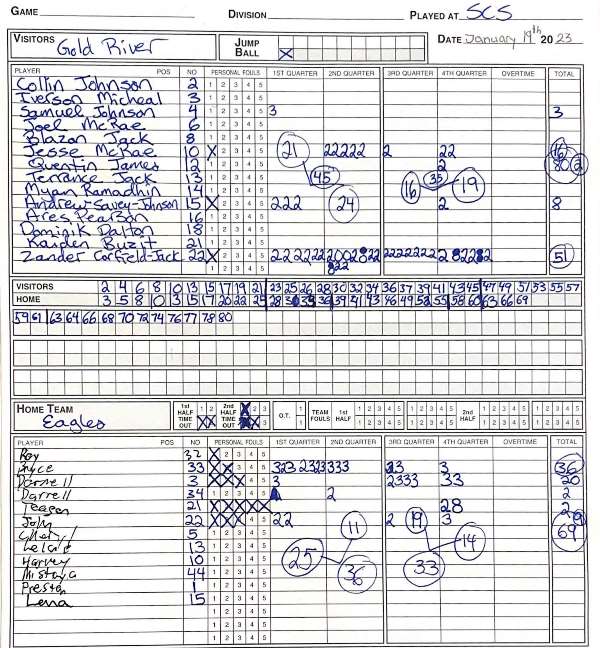 GAME DIVISION PLAYED AT SCS
VISITORS Gold River JUMP BALL X DATE January 19th 20 23
PLAYER POS NO PERSONAL FOULS 1ST QUARTER 2ND QUARTER 3RD QUARTER 4TH QUARTER OVERTIME TOTAL
Collin Johnson 2 1 2 3 4 5
Iverson Micheal 3 1 2 3 4 5
Samuel Johnson 4 1 2 3 4 5 3 3
Joel McRae 6 1 2 3 4 5
Blazon Jack 8 1 2 3 4 5
Jesse McRae 10 X 2 3 4 5 21 22222 2 22 16
Quentin James 12 1 2 3 4 5 2 80 2
Terrance Jack 13 1 2 3 4 5 45 35
Myan Ramadhin 14 1 2 3 4 5 16 19
Andrew-Savey-Johnson 15 X 2 3 4 5 222 24 2 8
Ares Pearson 16 1 2 3 4 5
Dominik Dalton 18 1 2 3 4 5
Kaiden Buzit 21 1 2 3 4 5
Zander Corfield-Jack 22 X 2 3 4 5 51
VISITORS 2 4 6 8 10 13 15 17 19 21 23 25 26 28 30 32 34 36 37 39 41 43 45 47 49 51 53 55 57
HOME 3 5 8 10 13 15 17 20 22 25 28 36 39 41 43 46 49 52 55 58 60 63 66 69
59 61 63 64 66 68 70 72 74 76 77 78 80
HOME TEAM Eagles 1st HALF TIME OUT 1 2 XX 2nd HALF TIME OUT X 2 3 O.T. TEAM FOULS 1st HALF 1 2 3 4 5 1 2 3 4 5 2nd HALF 1 2 3 4 5 1 2 3 4 5
PLAYER POS NO PERSONAL FOULS 1ST QUARTER 2ND QUARTER 3RD QUARTER 4TH QUARTER OVERTIME TOTAL
Roy 32 X 2 3 4 5
33 X X 3 4 5 3 36
Darnell 3 X X X 4 5 3 2333 33 20
Darrell 34 1 2 3 4 5 2 2
Teagan 21 X X X X X 28
John 22 X X X 4 5 22 11 2 19 3 9
5 1 2 3 4 5 69
13 1 2 3 4 5 25 14
Harvey 10 1 2 3 4 5 33
44 1 2 3 4 5 36
Preston 1 1 2 3 4 5
Lena 15 1 2 3 4 5
1 2 3 4 5
1 2 3 4 5